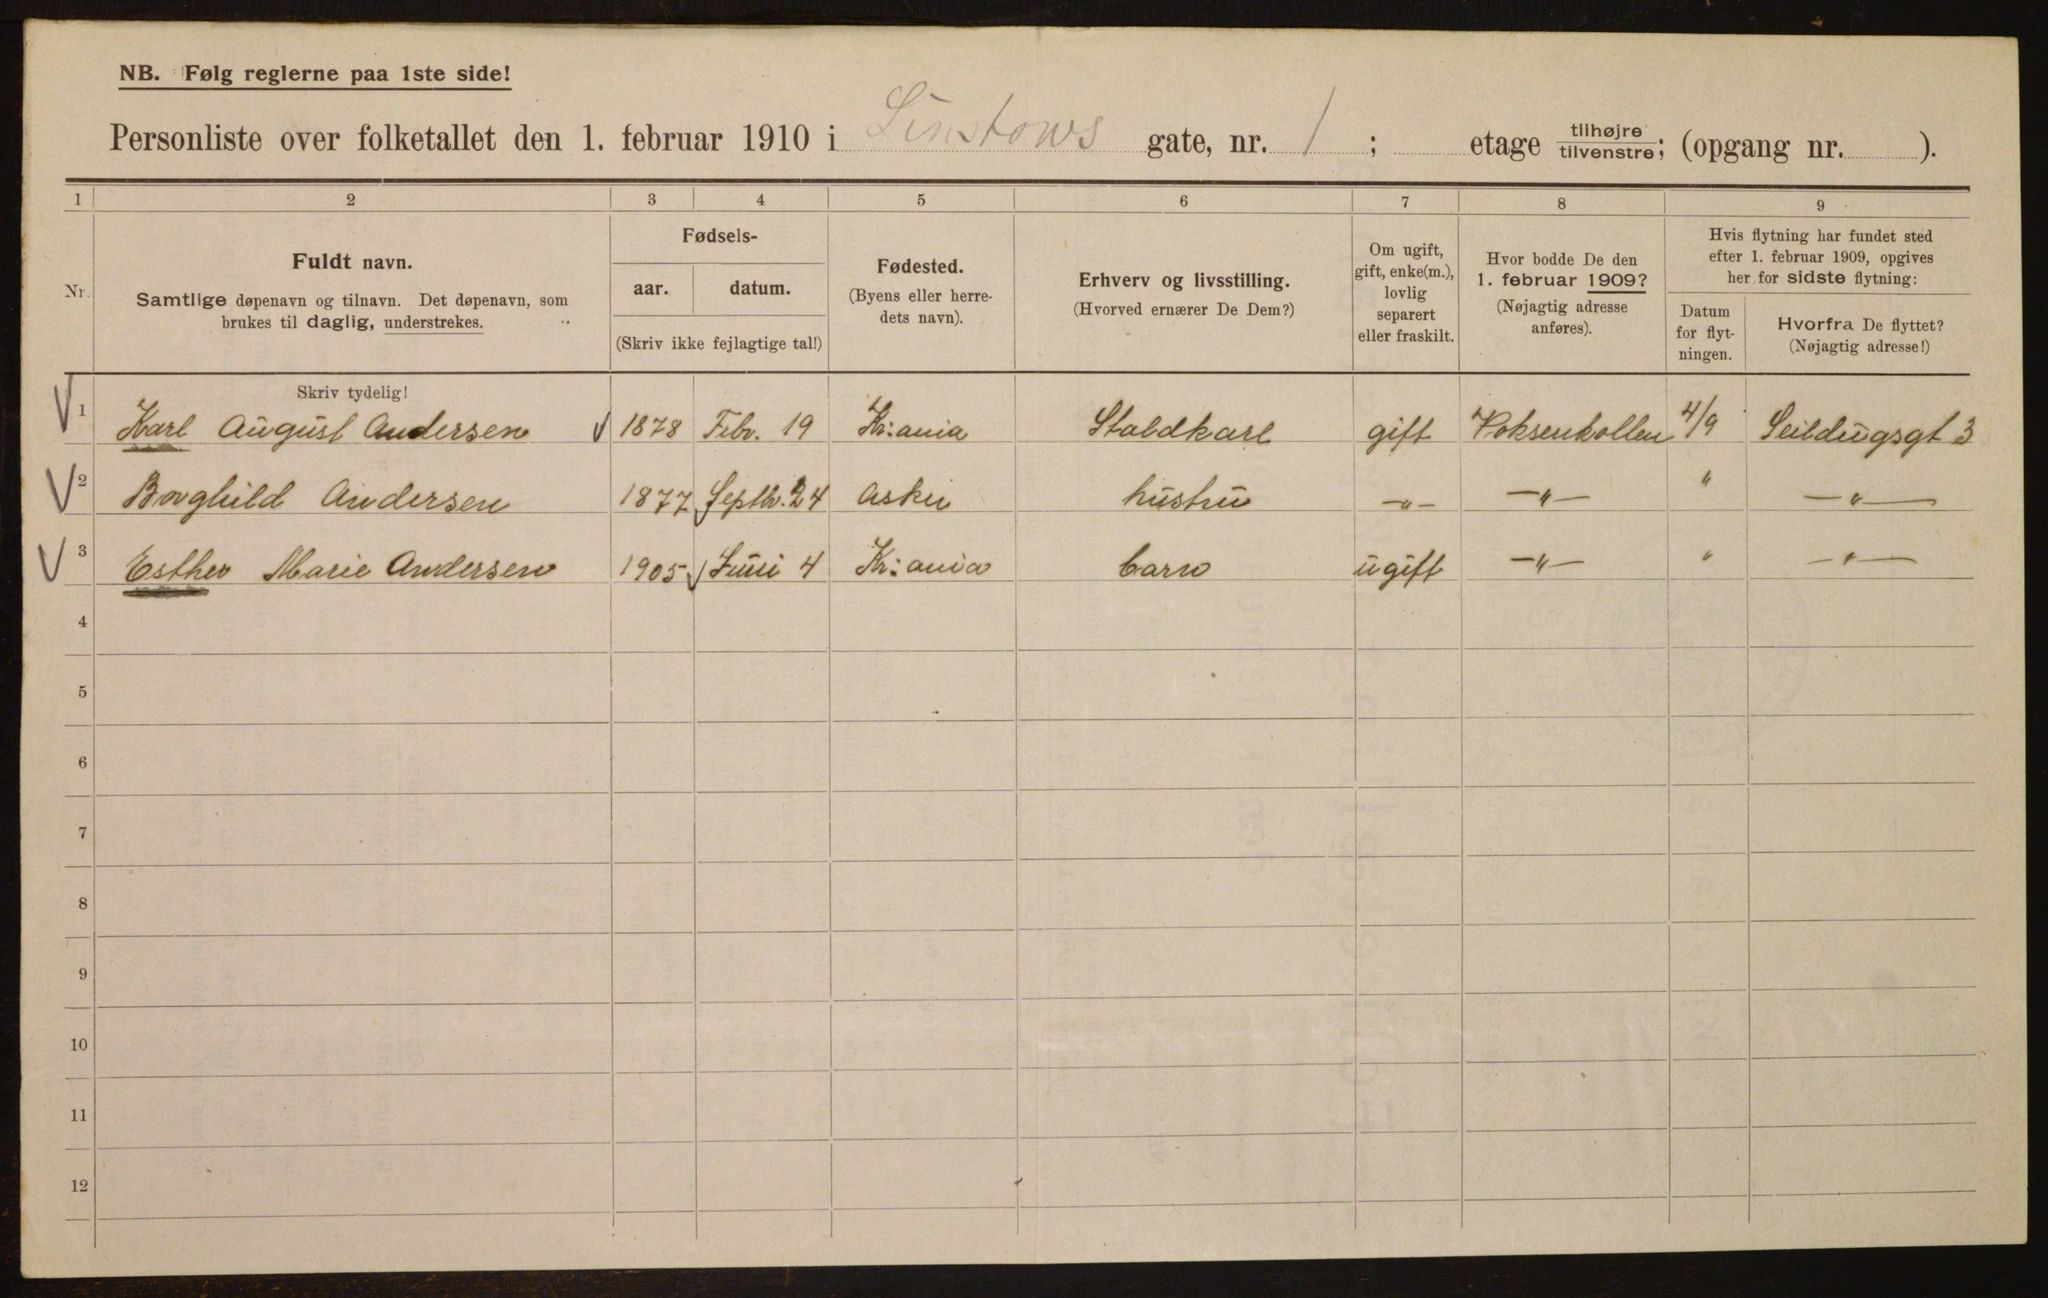 NB. Følg reglerne paa 1ste side!
Personliste over folketallet den 1. februar 1910 i Linstows gate, nr. 1 ; etage tilhøjre/tilvenstre; (opgang nr. ).
1 2 3 4 5 6 7 8 9
Nr. Fuldt navn. Samtlige døpenavn og tilnavn. Det døpenavn, som brukes til daglig, understrekes.
Fødsels- aar. datum. (Skriv ikke fejlagtige tal!)
Fødested. (Byens eller herredets navn).
Erhverv og livsstilling. (Hvorved ernærer De Dem?)
Om ugift, gift, enke(m.), lovlig separert eller fraskilt.
Hvor bodde De den 1. februar 1909? (Nøjagtig adresse anføres).
Hvis flytning har fundet sted efter 1. februar 1909, opgives her for sidste flytning:
Datum for flytningen. Hvorfra De flyttet? (Nøjagtig adresse!)
Skriv tydelig!
1 Karl August Andersen 1878 Febr. 19 Kr:ania Staldkarl gift Voksenkollen 4/9 Seildugsgt 3
2 Borghild Andersen 1877 Septbr. 24 Askim hustru —"— —"— " —"—
3 Esther Marie Andersen 1905 Juni 4 Kr:ania barn ugift —"— " —"—
4
5
6
7
8
9
10
11
12